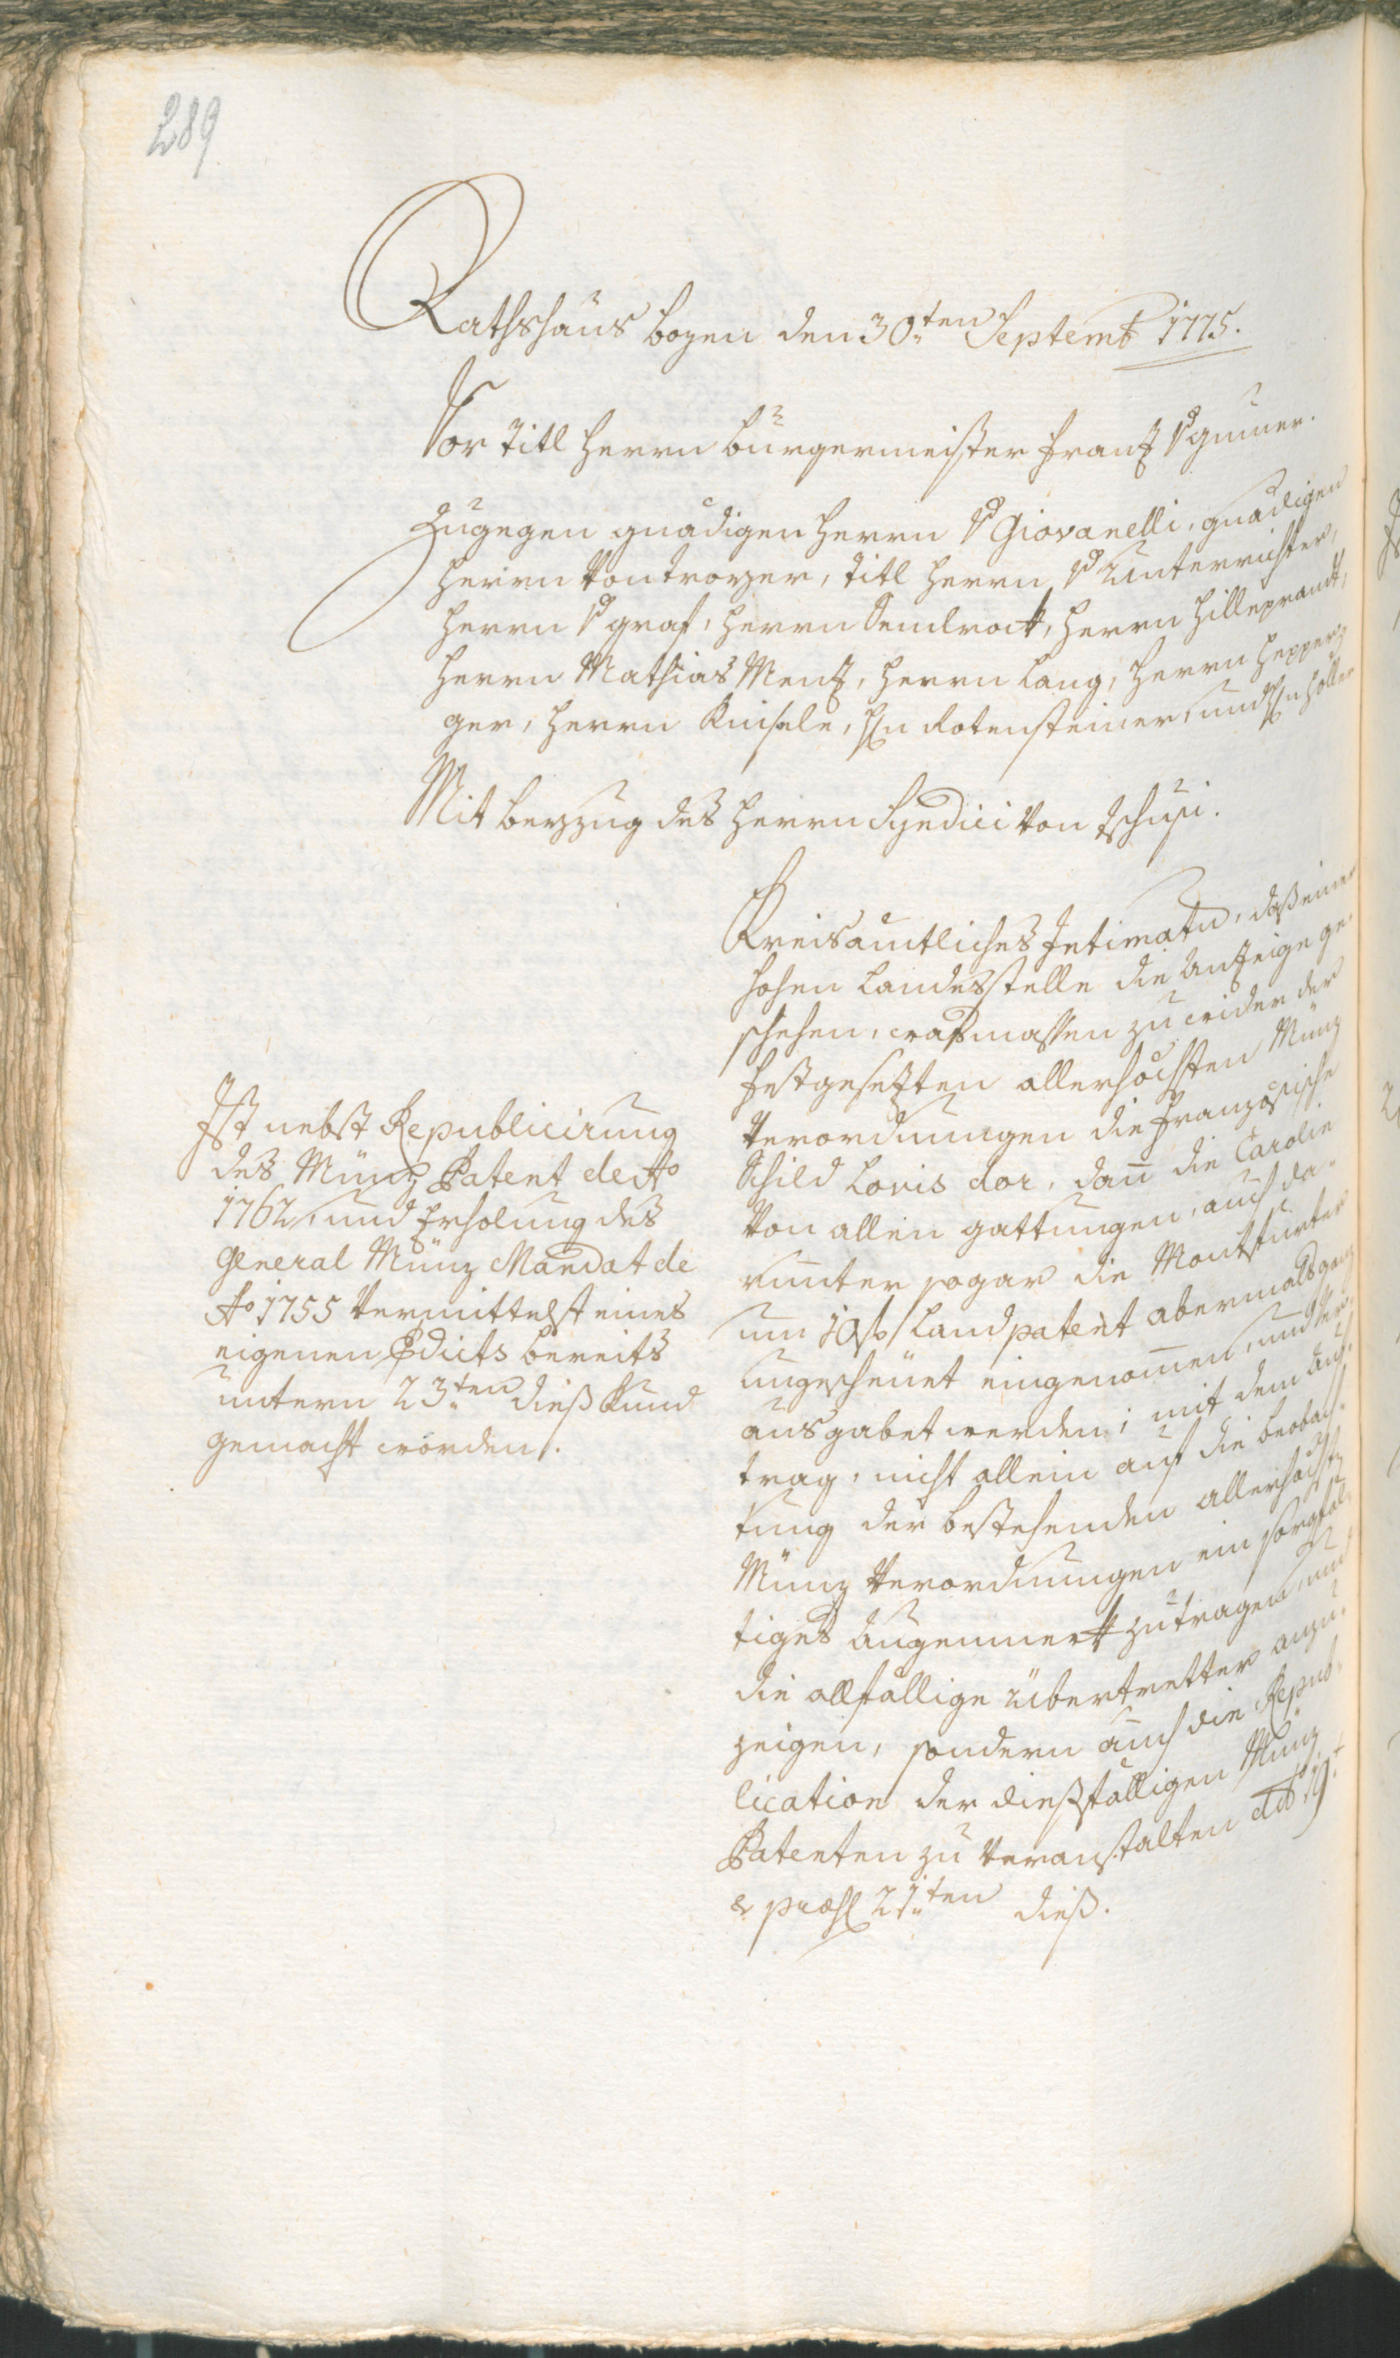 289
Rathshaus bozen den 30.ten Septemb 1775.
Vor titl herrn bürgermeister Franz v gumer.
Zugegen gnädigen herrn v Giovanelli, gnädigen
herrn Vontroyer, titl herrn v Unterrichter,
herrn v graf, herrn Sendrock, herrn hilleprandt,
herrn Mathias Menz, herrn lang, herrn hepper
ger, herrn Kinsele, hn Rotensteiner, und hn holler
Mit beyzug des herrn Syndici von tschusi.
Kreisämtliches Intimatum, daß einer
hohen landesstelle die Anzeige ge-
schehen, wasmassen zu wider der
festgesezten allerhöchsten Münz
Verordnungen die französische
Schild Lovis dor, dan̄ die Carolin
von allen gattungen, auch da-
runter sogar die
um landpatent abermals ganz
ungescheuet eingenom̄en, und ver-
ausgabet werden; mit dem Auf-
trag, nicht allein auf die beobach-
tung der bestehenden allerhöchst
Münz Verordnungen ein sorgfäl-
tiges Augenmerk zutragen, und
die allfällige übertretter anzu-
zeigen, sondern auch die Repub-
lication der dießfälligen Münz
Patenten zu veranstalten dd° 19t
& præs 21.ten dieß.
Ist nebst Republicirung
des Münz Patent de A°
1762, und Erholung des
General Münz Mandat de
A° 1755 vermittelst eines
eigenen Edicts bereits
untern 23.ten dieß kund
gemacht worden.